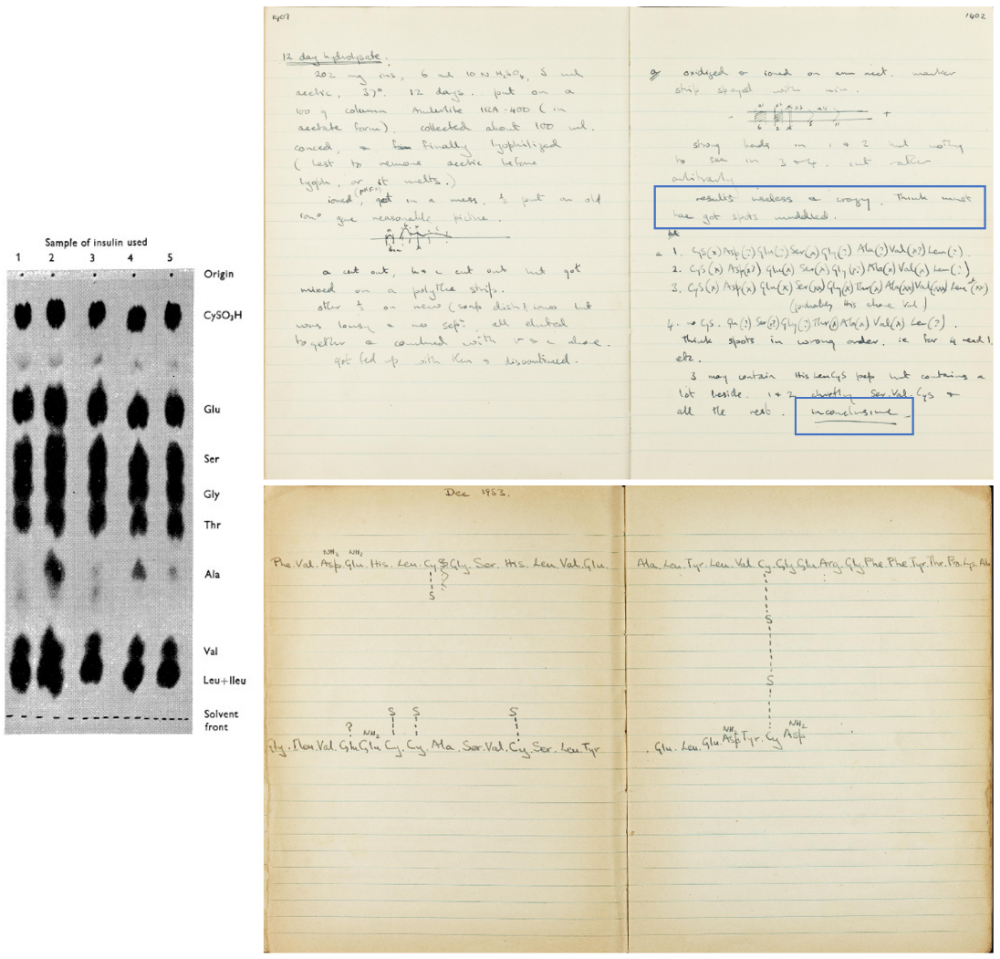 Sample of insulin used
1 2 3 4 5
Origin
CySO₃H
Glu
Ser
Gly
Thr
Ala
Val
Leu+Ileu
Solvent
front
12 day hydrolysate.
202 mg ins, 6 ml 10 N H₂SO₄, 5 ml
acetic, 37°. 12 days. put on a
100 g column Amberlite IRA-400 (in
acetate form). collected about 100 ml.
finally lyophilized
(best to remove acetic before
lyoph, or it melts.)
in a mess. ½ put on old
give reasonable picture.
a cut out, b+c cut out but got
mixed on a polythene strip.
other ½ on new (soap dish) iono but
was lousy + no sepⁿ, all eluted
together + combined with b+c above.
got fed up with + discontinued.
1402
a oxidized + ioned on marker
strip sprayed with nin.
- +
strong bands in 1 + 2 but nothing
to see in 3 + 4. cut rather
arbitrarily
results useless + crazy. Think must
have got spots muddled.
1. CyS(x) Asp(?) Glu(?) Ser(x) Gly(?) Ala(?) Val(x?) Leu(?).
2. CyS(x) Asp(x?) Glu(x) Ser(x) Gly(x?) Ala(x) Val(x) Leu(?)
3. CyS(x) Asp(x) Glu(x) Ser(xx) Gly(x) Thr(x) Ala(xx) Val(xx) Leu(xx)
(probably His above Val)
4. no CyS. Glu(?) Ser(?) Gly(?) Thr(x) Ala(x) Val(x) Leu(?).
Think spots in wrong order. ie for 4 read 1
etc.
3 may contain His Leu CyS pep but contains a
lot beside. 1 + 2 chiefly Ser.Val.CyS +
all the rest. inconclusive
Dec 1953.
NH₂ NH₂
Phe. Val. Asp. Glu. His. Leu. Cy Gly. Ser. His. Leu. Val. Glu.
S
Ala. Leu. Tyr. Leu. Val. Cy. Gly. Glu. Arg. Gly. Phe. Phe. Tyr. Thr. Pro. Lys. Ala
S
S
S S S
? NH₂
Gly. Ileu. Val. Glu. Glu. Cy. Cy. Ala. Ser. Val. Cy. Ser. Leu. Tyr
NH₂ NH₂
Glu. Leu. Glu. Asp. Tyr. Cy Asp